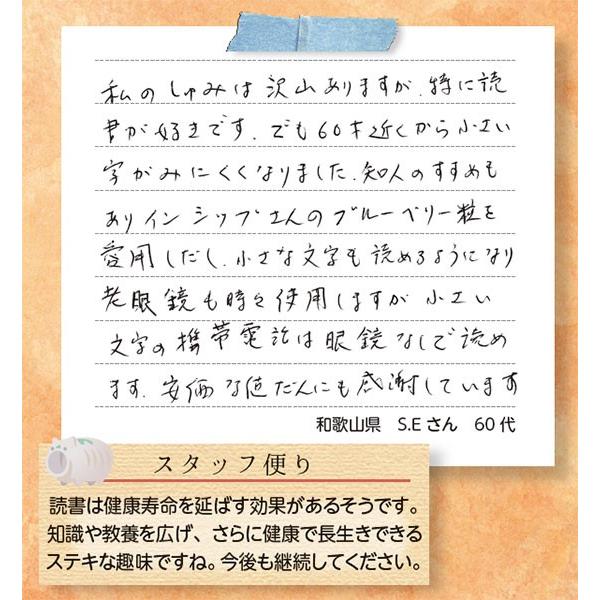 私のしゅみは沢山ありますが、特に読
書が好きです。でも60才近くから小さい
字がみにくくなりました。知人のすすめも
ありインシップさんのブルーベリー粒を
愛用しだし、小さな文字も読めるようになり
老眼鏡も時々使用しますが小さい
文字の携帯電話は眼鏡なしで読め
ます。安価な値だんにも感謝しています
和歌山県 S.Eさん 60代
スタッフ便り
読書は健康寿命を延ばす効果があるそうです。
知識や教養を広げ、さらに健康で長生きできる
ステキな趣味ですね。今後も継続してください。